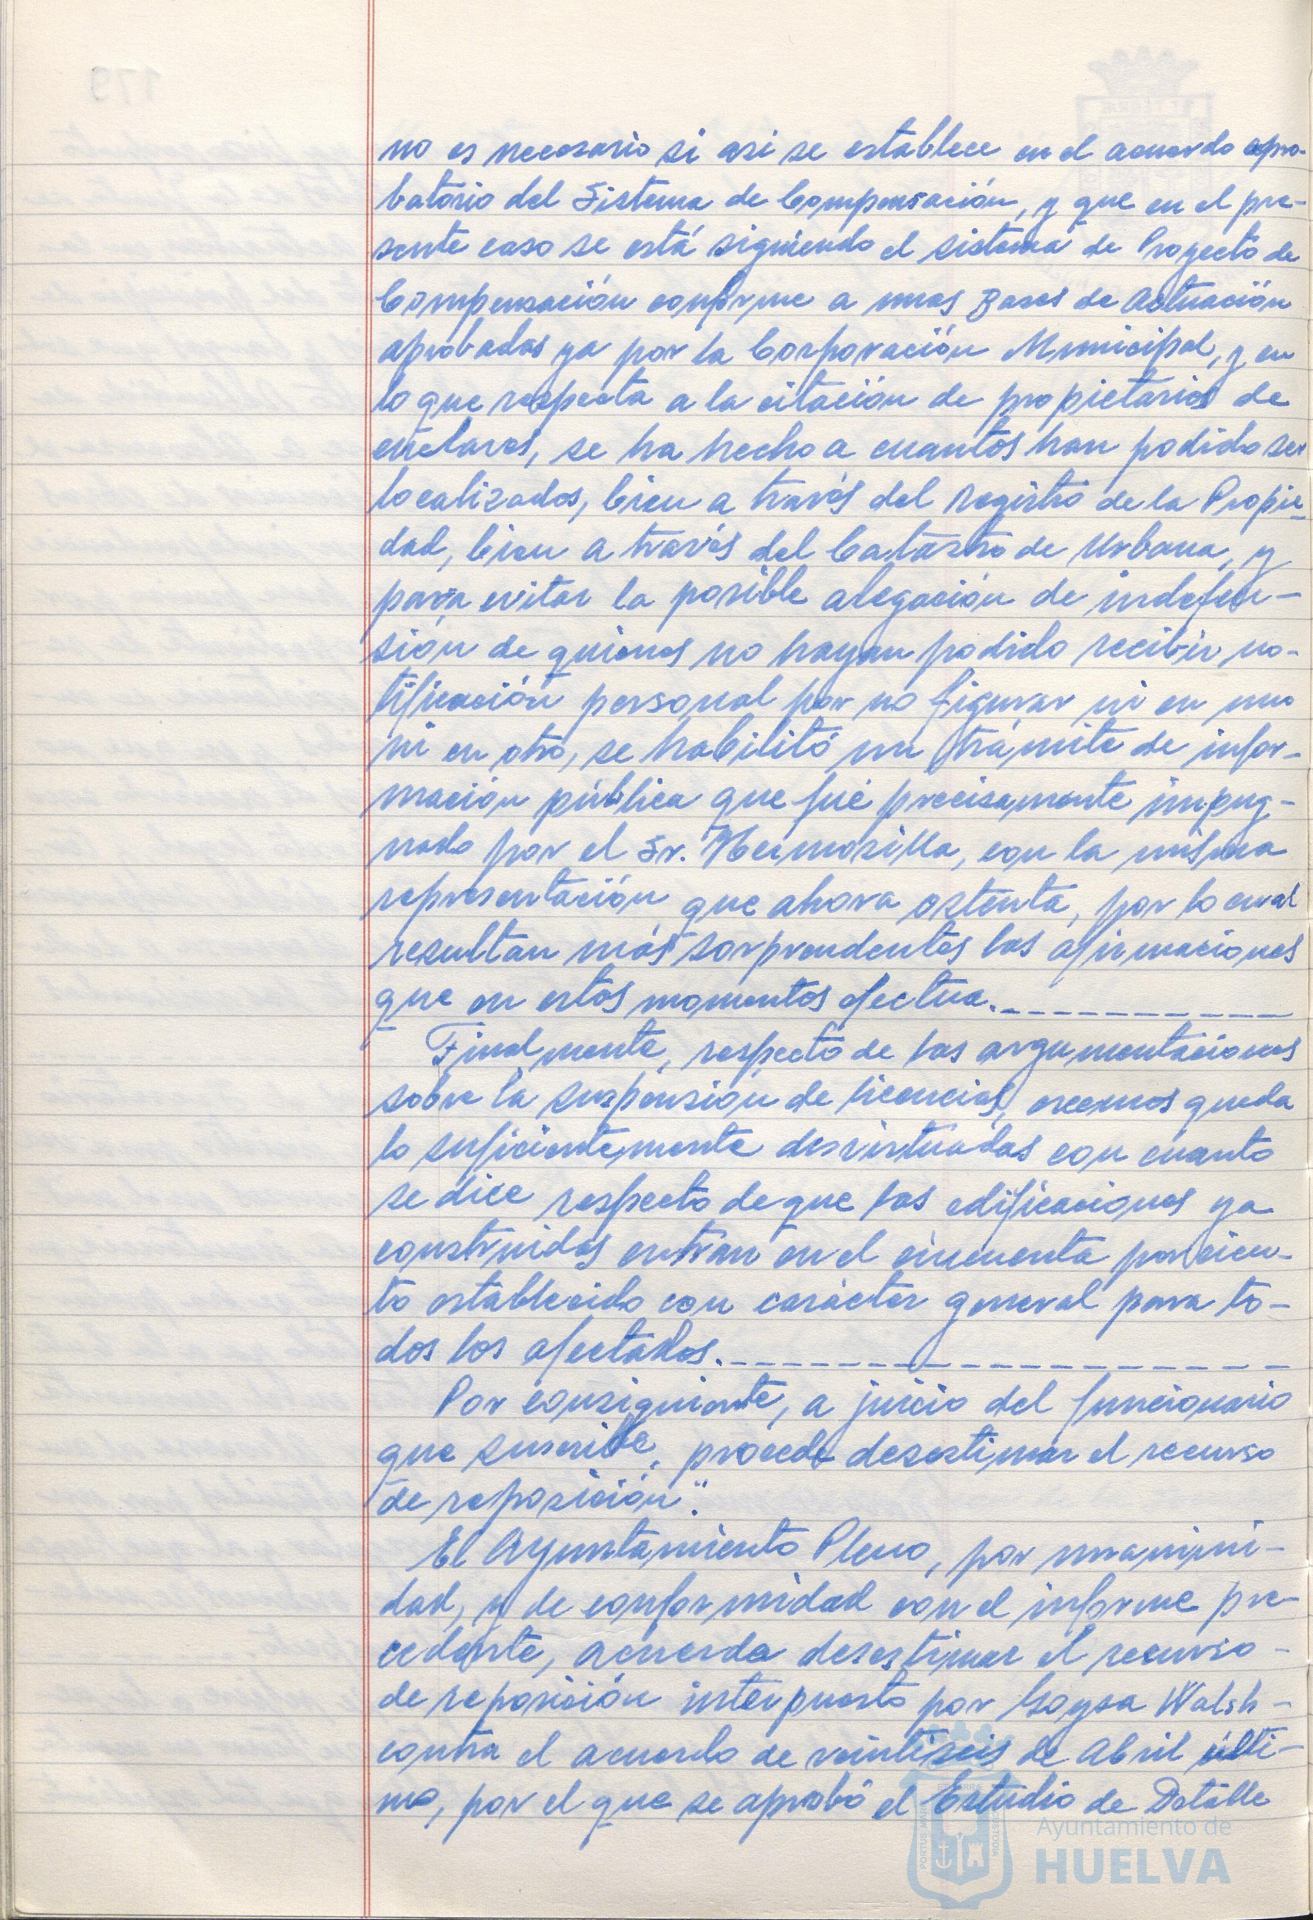 no es necesario si asi se establece en el acuerdo apro-
batorio del Sistema de Compensación, y que en el pre-
sente caso se está siguiendo el sistema de Proyecto de
Compensación conforme a unas Bases de Actuación
aprobadas ya por la Corporación Municipal, y en
lo que respecta a la citación de propietarios de
enclaves, se ha hecho a cuantos han podido ser
localizados, bien a través del Registro de la Propie-
dad, bien a través del Catastro de Urbana, y
para evitar la posible alegación de indefen-
sión de quienes no hayan podido recibir no-
tificación personal por no figurar ni en uno
ni en otro, se habilitó un trámite de infor-
mación pública que fué precisamente impug-
nado por el Sr. Hermosilla, con la misma
representación que ahora ostenta, por lo cual
resultan más sorprendentes las afirmaciones
que en estos momentos efectua.
Finalmente, respecto de las argumentaciones
sobre la suspensión de licencias, creemos queda
lo suficientemente desvirtuadas con cuanto
se dice respecto de que las edificaciones ya
construidas entran en el cincuenta por cien-
to establecido con carácter general para to-
dos los afectados.
Por consiguiente, a juicio del funcionario
que suscribe, procede desestimar el recurso
de reposición".
El Ayuntamiento Pleno, por unanimi-
dad, y de conformidad con el informe pre-
cedente, acuerda desestimar el recurso
de reposición interpuesto por Walsh
contra el acuerdo de veintiseis de Abril últi-
mo, por el que se aprobó el Estudio de Detalle
Ayuntamiento de
HUELVA